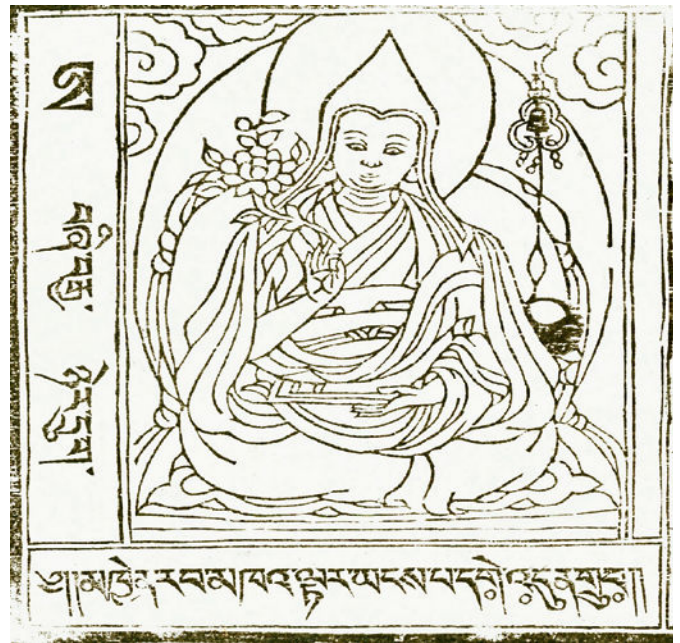 ཨ བཞི་བརྒྱ་ ཉེར་དྲུག་
༄། །མཁྱེན་རབ་མཁའ་ལྟར་ཡངས་པ་དགེ་འདུན་གྲུབ། །